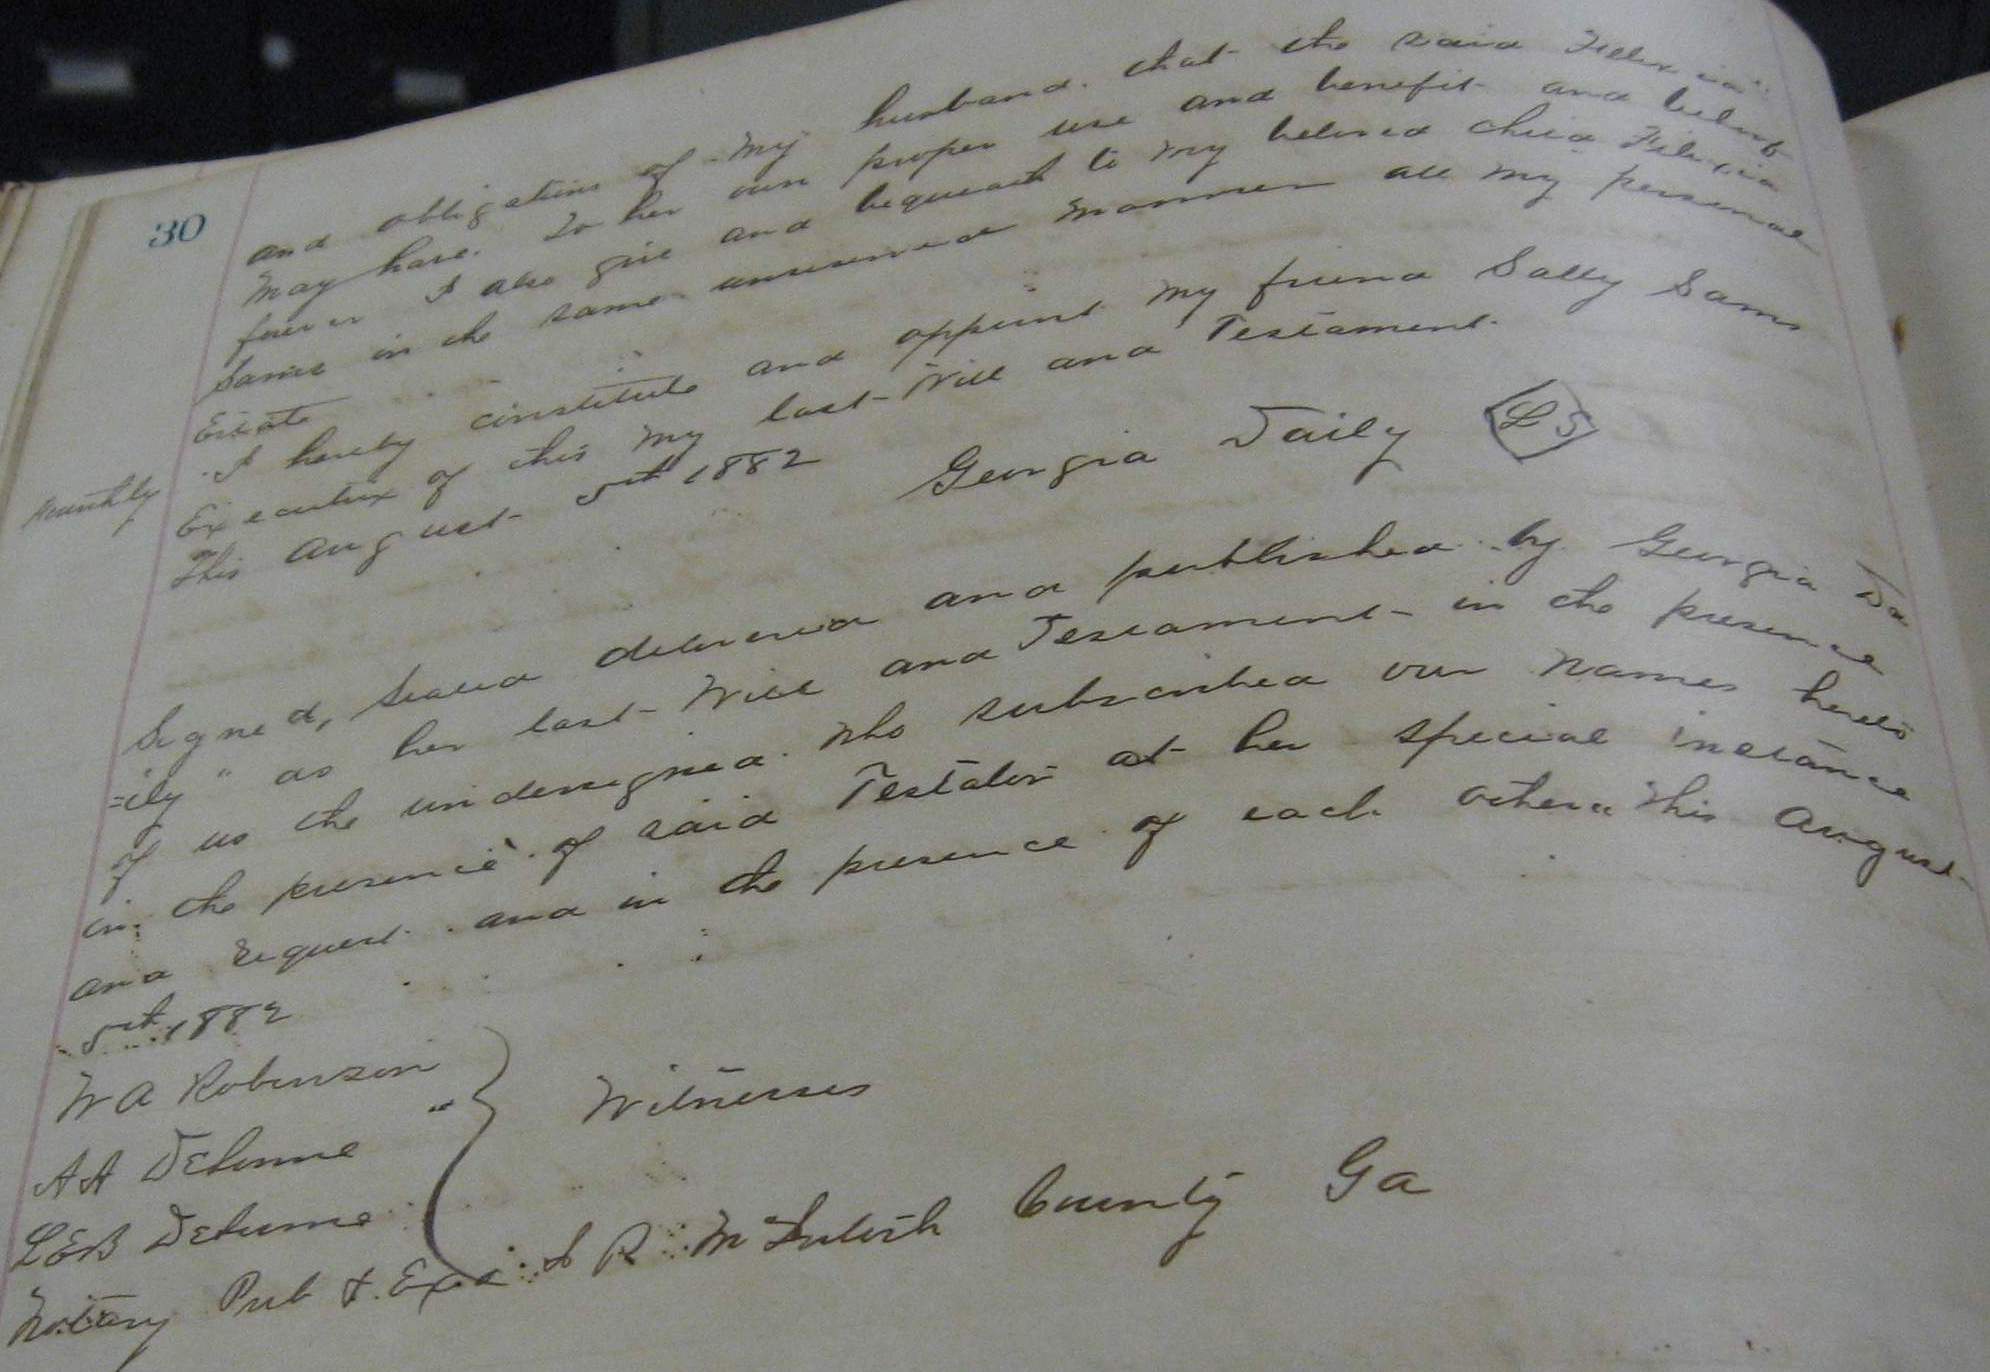 30
and obligations of my husband. that the said Felix
may have. To her own proper use and benefit and behoof
forever I also give and bequeath to my beloved child Felixia
Same in the same unreserved manner all my personal
Estate
I hereby constitute and appoint my friend Sally Sams
Executrix of this my last Will and Testament.
This August 5th 1882
Georgia Daily L S
Signed, Sealed delivered and published by Georgia Da
=ily" as her last Will and Testament in the presence
of us the undersigned. who subscribed our names hereto
in the presence of said Testator at her special instance
and request and in the presence of each other this August
5th 1882
W A Robinson
A A DeLorme
Witnesses
L E B DeLorme
Notary Pub & Exo J P McIntosh County Ga